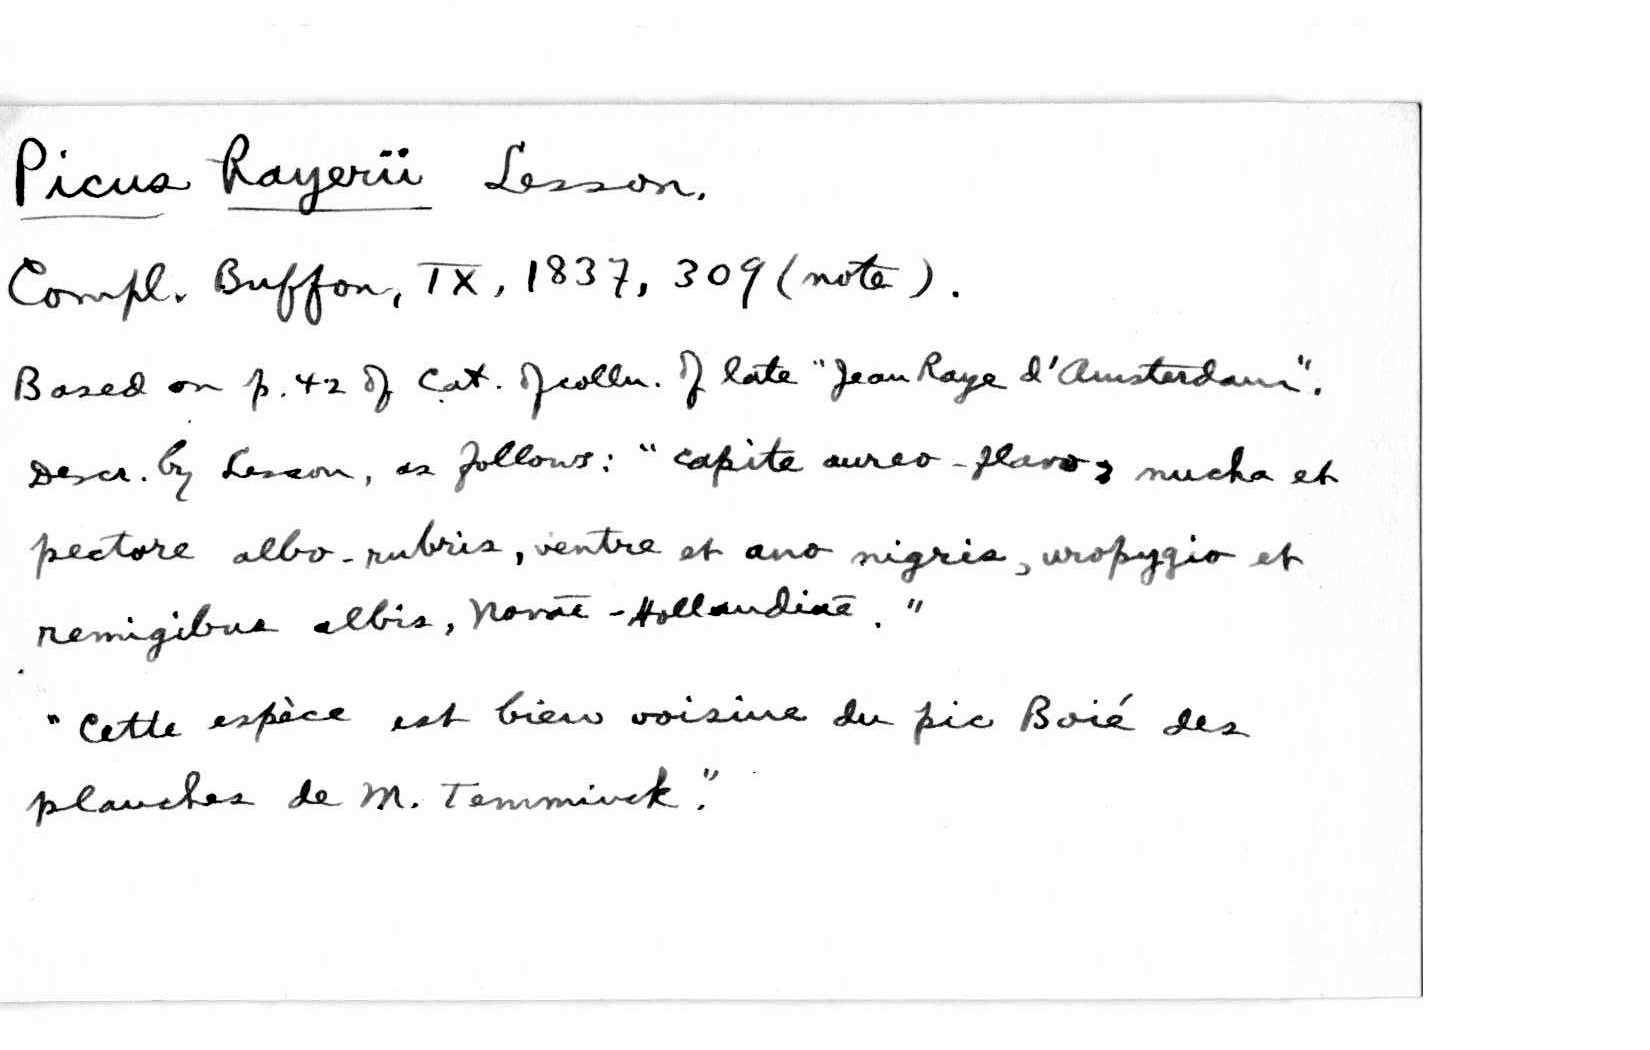 Picus Rayerii Lesson.
Compl. Buffon, IX, 1837, 309 (note).
Based on p. 42 of Cat. of colln. of late "Jean Raye d'Amsterdam".
Descr. by Lesson, as follows: "capite aureo-flavo, nucha et
pectore albo-rubris, ventre et ano nigris, uropygio et
remigibus albis, Novae-Hollandiae."
"Cette espèce est bien voisine du pic Boié des
planches de M. Temminck."